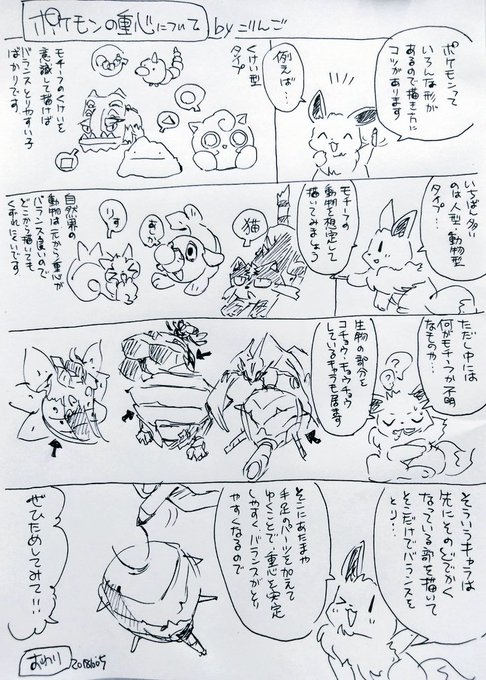 ポケモンの重心について
byごりんご
ポケモンって
いろんな形が
あるので描き方に
コツがあります
例えば…
くけい型
タイプ
モチーフのくけいを
意識して描けば
バランスとりやすいろ
ばかりです
いちばん多い
のは人型・動物型
タイプ…
モチーフの
動物を想定して
描いてみましょう
猫
あざ
りす
自然界の
動物は元から重心が
バランスよいので
どこから描いても
くずれにくいです
ただし中には
何がモチーフか不明
なものや…
生物の部分を
コチョウ・キョウチョウ
しているキャラも居ます
そういうキャラは
先にそのどでかく
なっている部を描いて
そこだけでバランスを
とり…
そこにあたまや
手足のパーツを加えて
ゆくことで重心を安定
しやすく、バランスがとり
やすくなるので
ぜひためしてみて!!
おわり